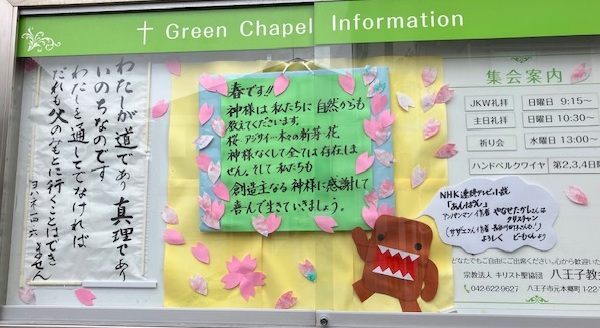 ✝ Green Chapel Information
わたしが道であり真理であり
いのちなのです
わたしを通してでなければ
だれも父のみもとに行くことはできません
ヨハネ一四・六
春です!!
神様は私たちに自然からも
教えてくださいます。
桜 アジサイ…木々の新芽・花
神様なくして全ては存在しま
せん。そして私たちも
創造主なる神様に感謝して
喜んで生きていきましょう。
NHK 連続テレビ小説
「あんぱん」
アンパンマン作者 やなせたかしさんは
クリスチャン
よろしく どーもくんより
集会案内
JKW礼拝 日曜日 9:15〜
主日礼拝 日曜日 10:30〜
祈り会 水曜日 13:00〜
ハンドベルクワイヤ 第2,3,4日
どなたでもご自由にご出席ください。心から歓迎いた
宗教法人 キリスト聖協団 八王子教会
042-622-9627 八王子市元本郷町1-22-